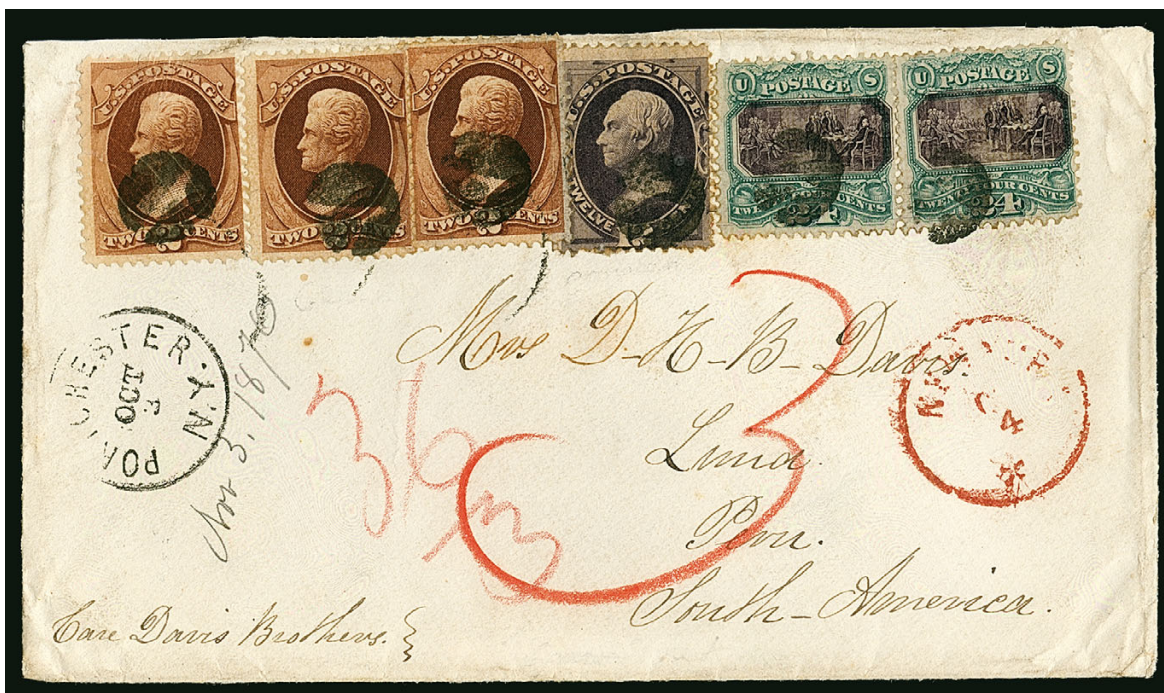 U.S. POSTAGE
TWO 2 CENTS
U.S. POSTAGE
TWO 2 CENTS
U.S. POSTAGE
TWO 2 CENTS
U.S. POSTAGE
TWELVE
U POSTAGE S
CENTS
24
U POSTAGE S
FOUR CENTS
24
PORTCHESTER N.Y.
OCT
3
Nov 3. 1870
36
3
Mrs D-H-B-Davis
Lima
Peru.
South-America.
4
Care Davis Brothers.